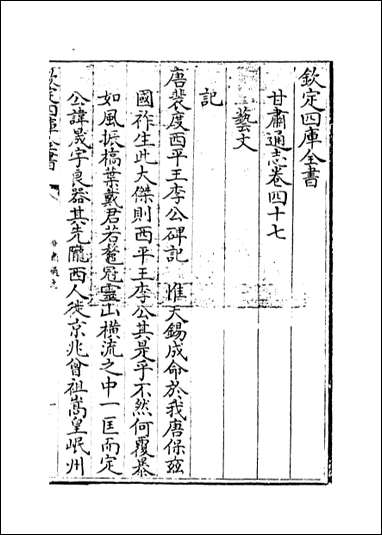 欽定四庫全書
甘肅通志卷四十七
藝文
記
唐裴度西平王李公碑記 惟天錫成命於我唐保玆
國祚生此大傑則西平王李公其是乎不然何覆暴
如風振槁葉戴君若鼇冠靈山橫流之中一匡而定
公諱晟字良器其先隴西人徙京兆曾祖嵩皇岷州
欽定四庫全書
甘肅通志